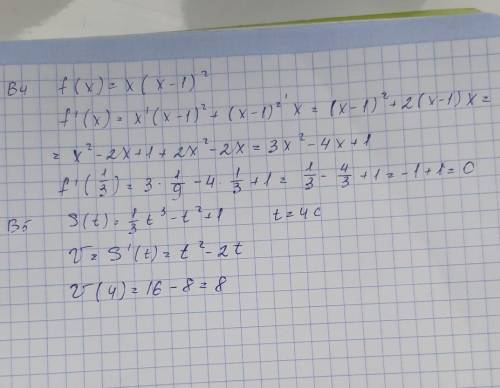 В4 f(x) = x(x-1)²
f'(x) = x'(x-1)² + (x-1)²' x = (x-1)² + 2(x-1)x =
= x² - 2x + 1 + 2x² - 2x = 3x² - 4x + 1
f'(1/3) = 3 · 1/9 - 4 · 1/3 + 1 = 1/3 - 4/3 + 1 = -1 + 1 = 0
В5 S(t) = 1/3 t³ - t² + 1 t = 4с
V = S'(t) = t² - 2t
V(4) = 16 - 8 = 8